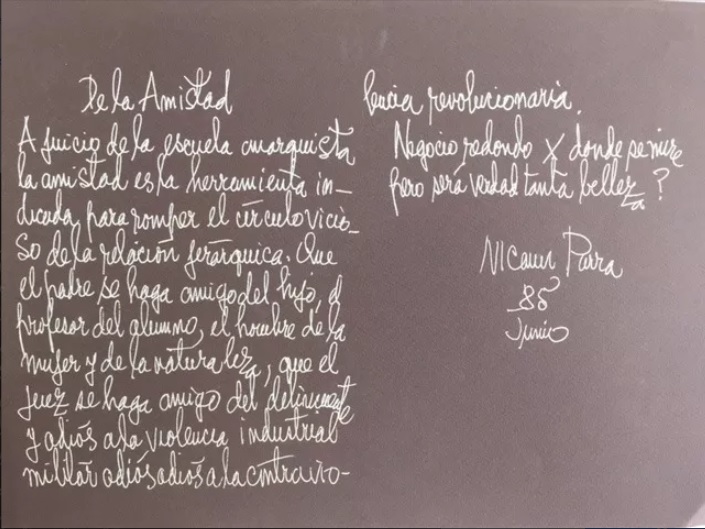 De la Amistad
A juicio de la escuela anarquista
la amistad es la herramienta in-
dicada para romper el círculo vicio-
so de la relación jerárquica. Que
el padre se haga amigo del hijo, el
profesor del alumno, el hombre de la
mujer y de la naturaleza, que el
juez se haga amigo del delincuente
y adiós a la violencia industrial
militar adiós adiós a la contravio-
lencia revolucionaria.
Negocio redondo X donde se mire
pero será verdad tanta belleza?
Nicanor Parra
86
Junio